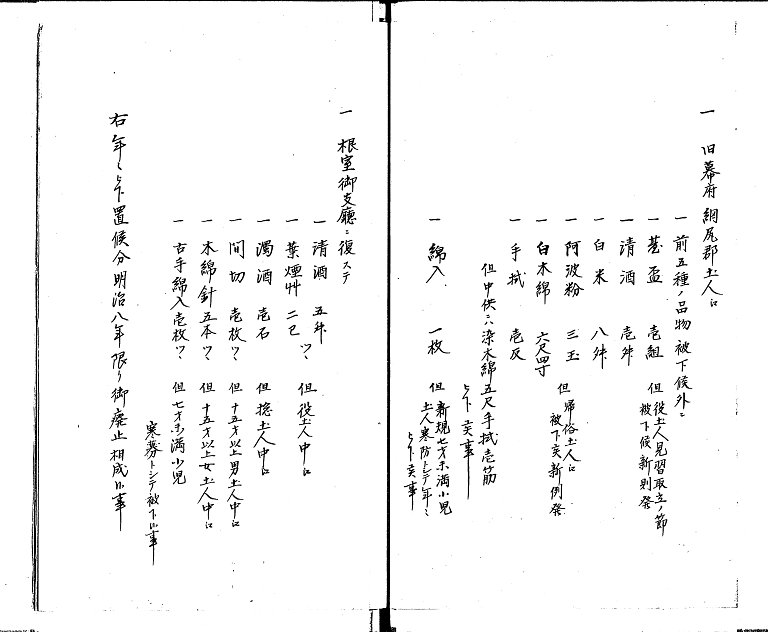 一 旧幕府網尻郡土人江
一 前五種ノ品物被下候外ニ
一 甚盃 壱組 但役土人見習取立ノ節
被下候新則発
一 清酒 壱舛
一 白米 八舛
一 阿波粉 三玉
一 白木綿 六尺四寸 但帰俗土人江
被下亥新例発
一 手拭 壱反
但中供ニハ染木綿五尺手拭壱筋
ゟ下亥事
一 綿入 一枚 但新規七才未満小児
土人寒防トシテ年々
ゟ下亥事
一 根室御支廳ニ復ステ
一 清酒 五舛ツヽ 但役土人中江
一 葉煙艸 二己
一 濁酒 壱石 但惣土人中江
一 間切 壱枚ツヽ 但十五才以上男土人中江
一 木綿針五本ツヽ 但十五才以上女土人中江
一 古手綿入壱枚ツヽ 但七才未満小児
寒募トシテ被下候事
右年々ゟ下置候分明治八年限リ御廃止相成候事